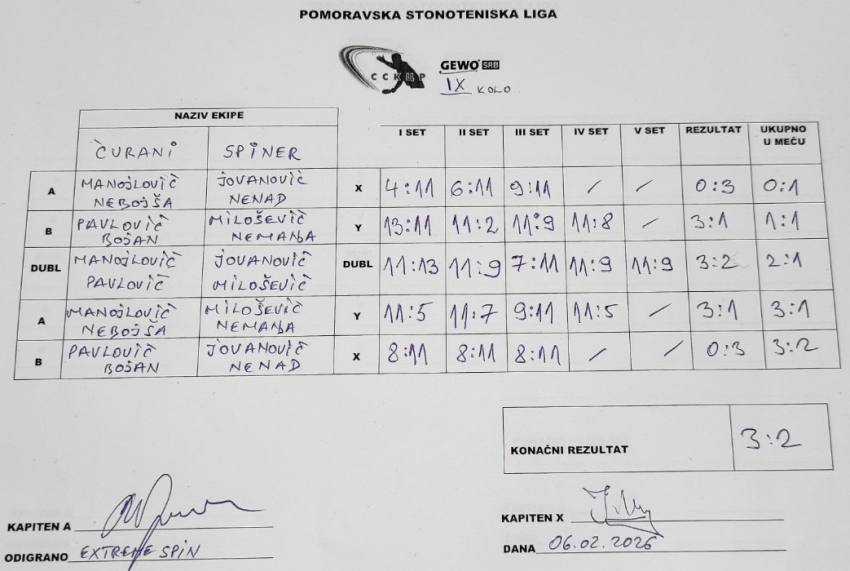 POMORAVSKA STONOTENISKA LIGA
CCKMP
GEWO SRB
IX KOLO
NAZIV EKIPE
ČURANI SPINER I SET II SET III SET IV SET V SET REZULTAT UKUPNO U MEČU
A MANOJLOVIČ NEBOJŠA JOVANOVIČ NENAD X 4:11 6:11 9:11 / / 0:3 0:1
B PAVLOVIČ BOJAN MILOŠEVIČ NEMANJA Y 13:11 11:2 11:9 11:8 / 3:1 1:1
DUBL MANOJLOVIČ PAVLOVIČ JOVANOVIČ MILOŠEVIČ DUBL 11:13 11:9 7:11 11:9 11:9 3:2 2:1
A MANOJLOVIČ NEBOJŠA MILOŠEVIČ NEMANJA Y 11:5 11:7 9:11 11:5 / 3:1 3:1
B PAVLOVIČ BOJAN JOVANOVIČ NENAD X 8:11 8:11 8:11 / / 0:3 3:2
KONAČNI REZULTAT 3:2
KAPITEN A
KAPITEN X
ODIGRANO EXTREME SPIN
DANA 06.02.2026